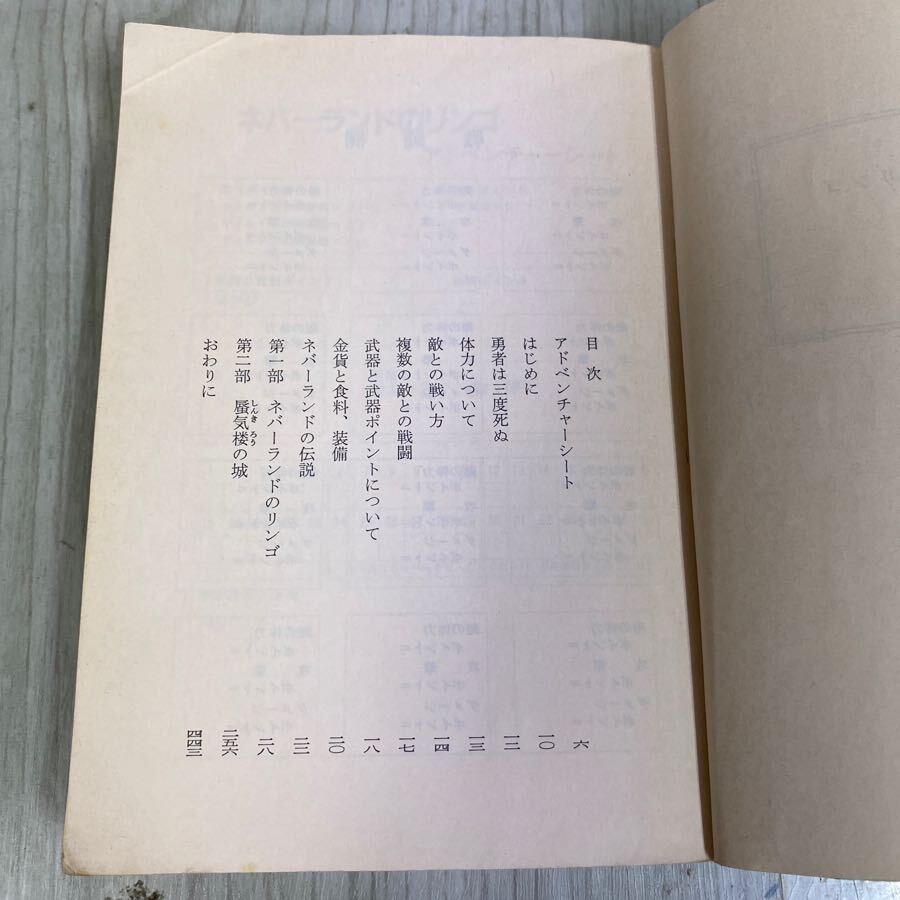 目次
アドベンチャーシート 六
はじめに 一〇
勇者は三度死ぬ 一二
体力について 一三
敵との戦い方 一四
複数の敵との戦闘 一七
武器と武器ポイントについて 一八
金貨と食料、装備 二〇
ネバーランドの伝説 二二
第一部 ネバーランドのリンゴ 二八
第二部 蜃気楼の城 二五六
しんきろう
おわりに 四四三